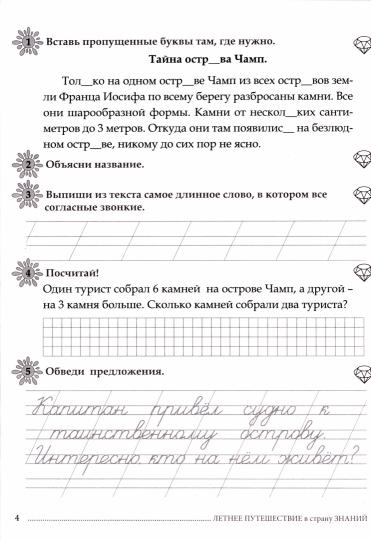 1 Вставь пропущенные буквы там, где нужно.
Тайна остр__ва Чамп.
Тол__ко на одном остр__ве Чамп из всех остр__вов зем-
ли Франца Иосифа по всему берегу разбросаны камни. Все
они шарообразной формы. Камни от нескол__ких санти-
метров до 3 метров. Откуда они там появилис__ на безлюд-
ном остр__ве, никому до сих пор не ясно.
2 Объясни название.
3 Выпиши из текста самое длинное слово, в котором все
согласные звонкие.
4 Посчитай!
Один турист собрал 6 камней на острове Чамп, а другой –
на 3 камня больше. Сколько камней собрали два туриста?
5 Обведи предложения.
Капитан привёл судно к
таинственному острову.
Интересно, кто на нём живёт?
4 ЛЕТНЕЕ ПУТЕШЕСТВИЕ в страну ЗНАНИЙ